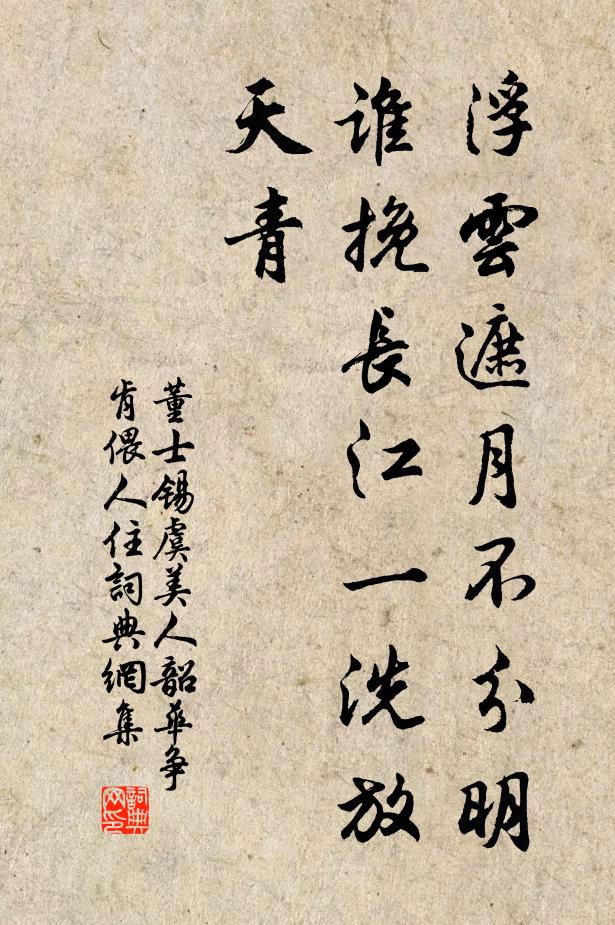 浮雲遮月不分明
誰挽長江一洗放
天青
董士錫虞美人韶華爭
肯偎人住詞典網集
詞典
网印